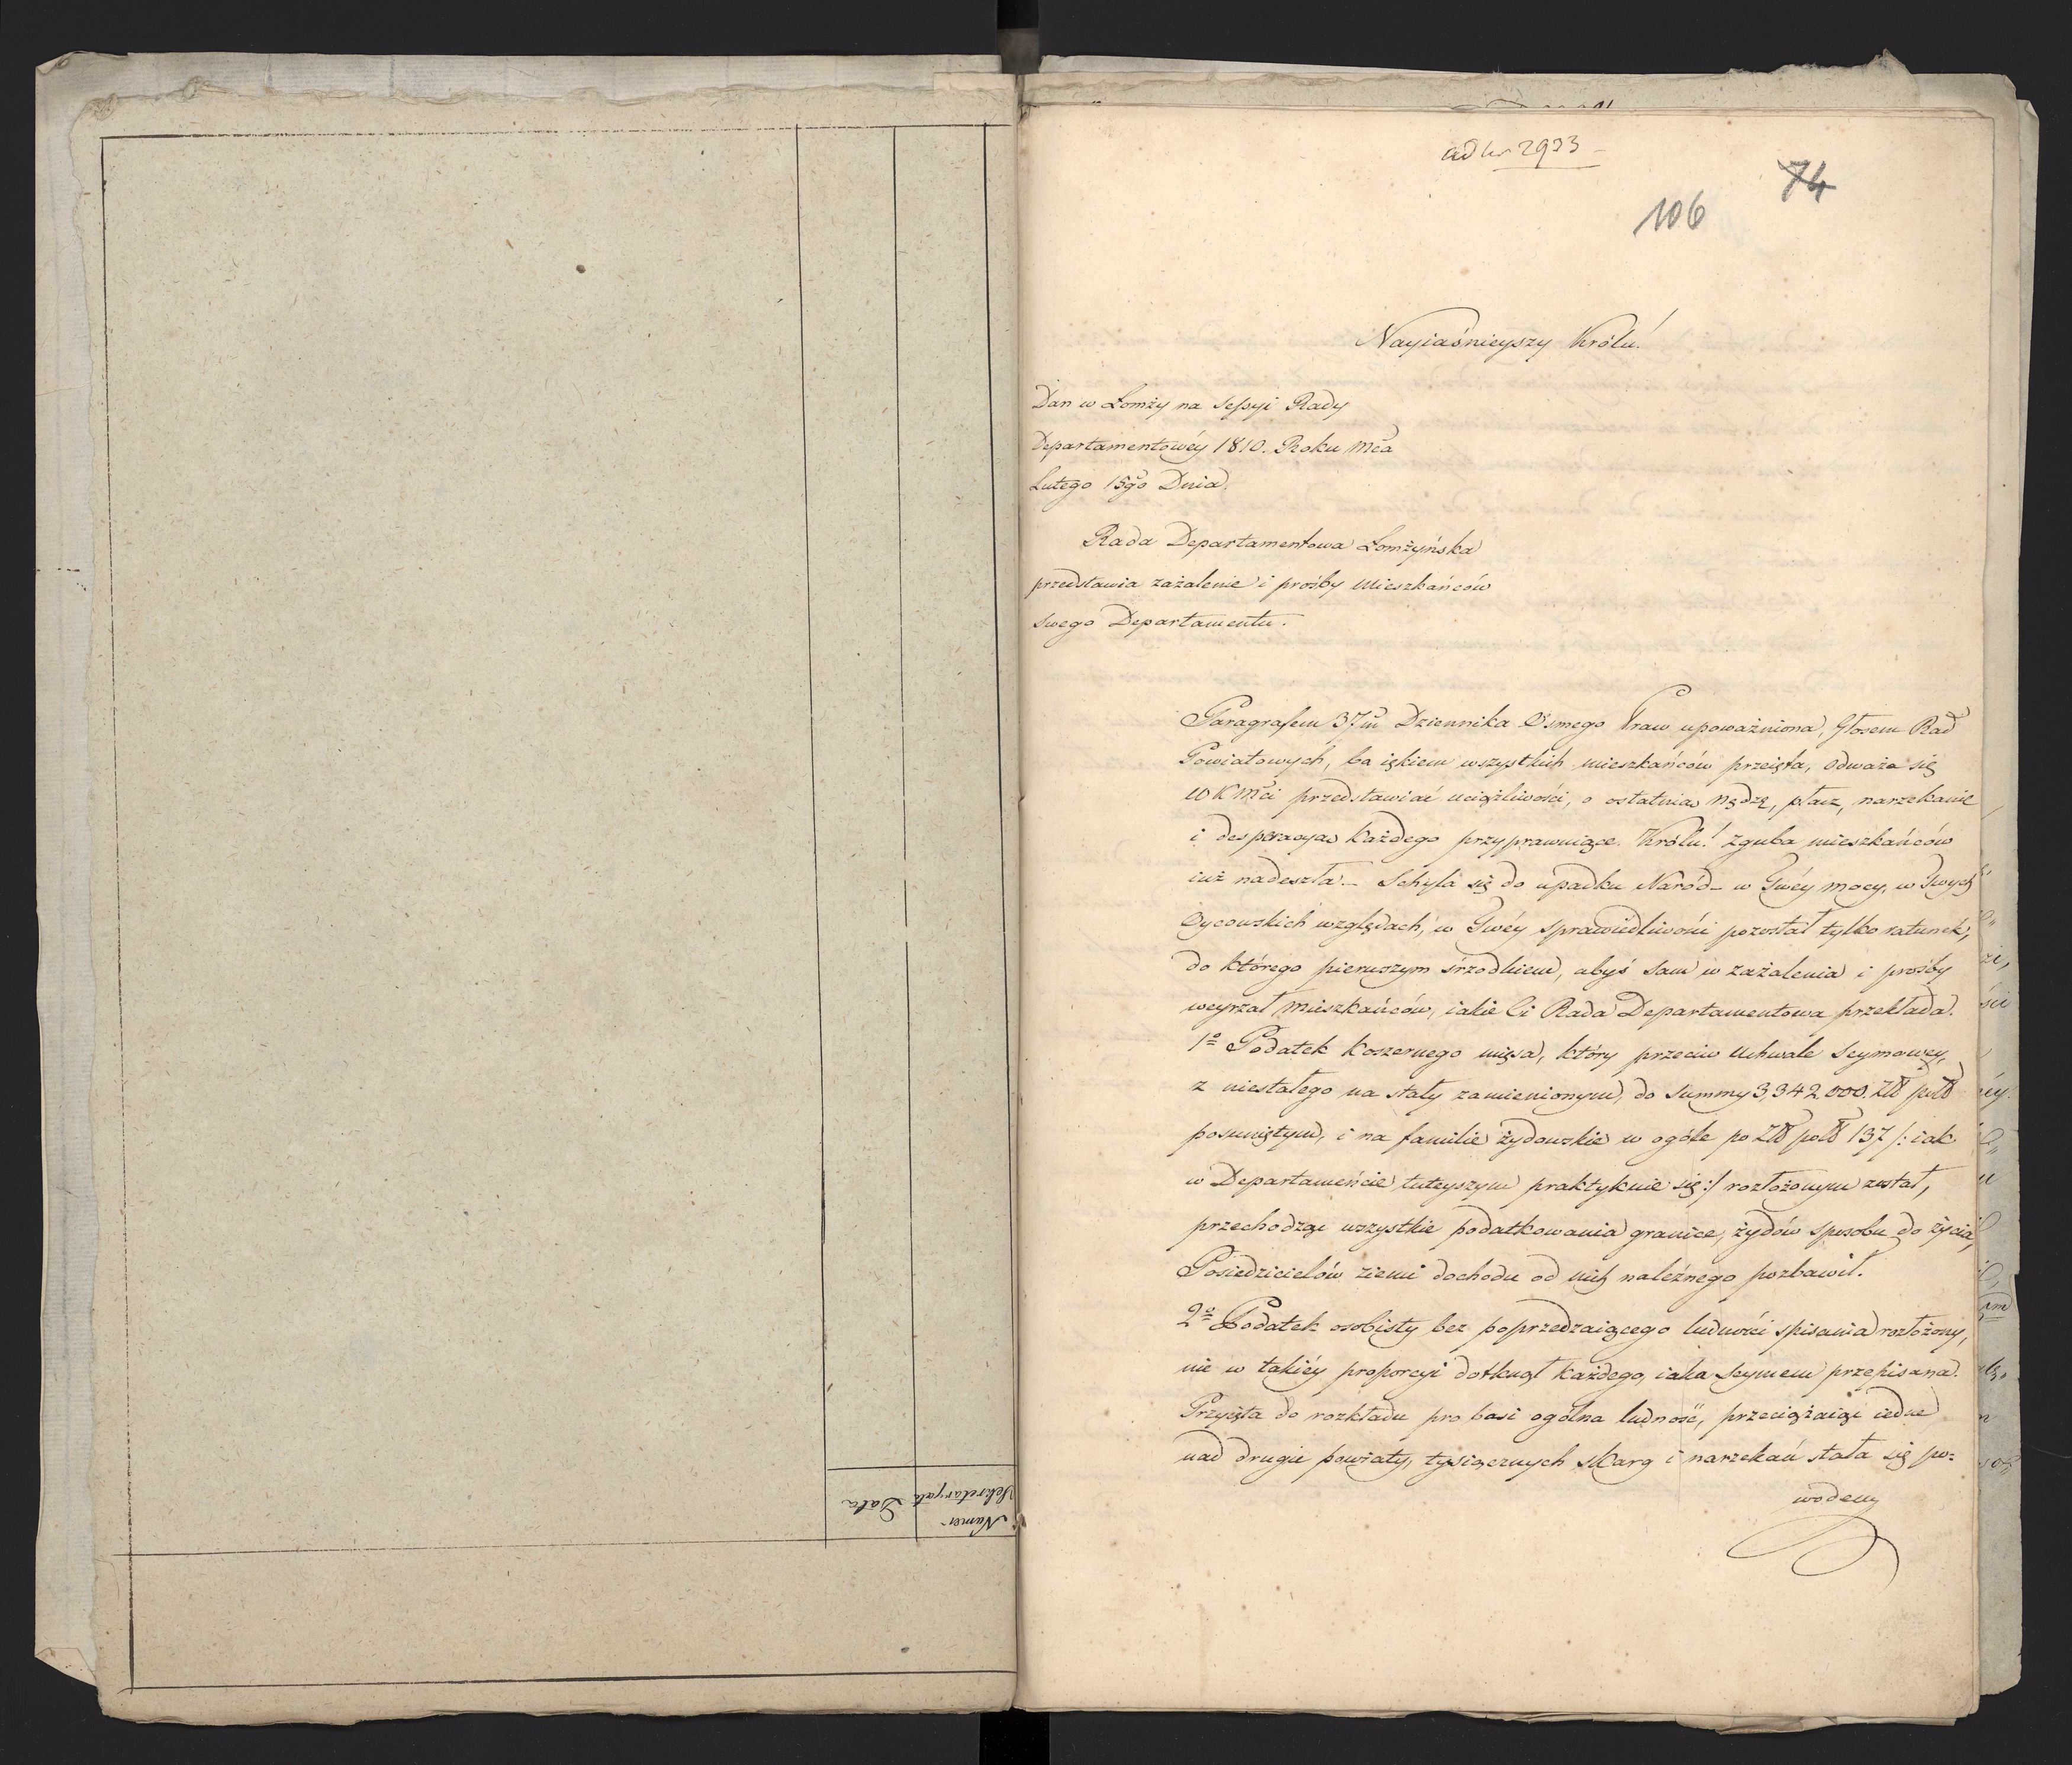 Numer
Sekretaryatu
Data
ad Nr 2933
74
106
Nayiaśnieyszy Królu!
Dan w Łomży na Sessyi Rady
Departamentowéy 1810. Roku Mca
Lutego 15go Dnia.
Rada Departamentowa Łomżyńska
przedstawia zażalenie i prośby Mieszkańców
swego Departamentu.
Paragrafem 37m Dziennika Osmego Praw upoważniona, Głosem Rad
Powiatowych, ba iękiem wszystkich mieszkańców przeięta, odważa się
WKMci przedstawiać uciążliwości, o ostatnia nędzę, płacz, narzekanie
i desperacya każdego przyprawuiące. Królu! Zguba mieszkańców
iuż nadeszła. – Schyla się do upadku Naród – w Twéy mocy, w Twych
Oycowskich względach, w Twéy sprawiedliwości pozostał tylko ratunek,
do którego pierwszym śrzodkiem, abyś sam w zażalenia i prośby
weyrzał Mieszkańców, iakie Ci Rada Departamentowa przekłada.
1o Podatek koszernego mięsa, który przeciw Uchwale Seymowey,
z niestałego na stały zamienionym, do Summy 3,342,000. Złł poll
posuniętym, i na familie żydowskie w ogóle po Złł poll 137 /: iak
w Departamencie tuteyszym praktykuie się :/ rozłożonym został,
przechodząc wszystkie podatkowania granice, żydów sposobu do życia,
Posiedzicielów ziemi dochodu od nich należnego pozbawił.
2o Podatek osobisty bez poprzedzaiącego ludności spisania rozłożony,
nie w takiéy proporcyi dotknął każdego, iaka Seymem przepisana.
Przyięta do rozkładu pro basi ogólna ludność, przeciążaiąc iedne
nad drugie powiaty, tysiącznych skarg i narzekań stała się po=
wodem